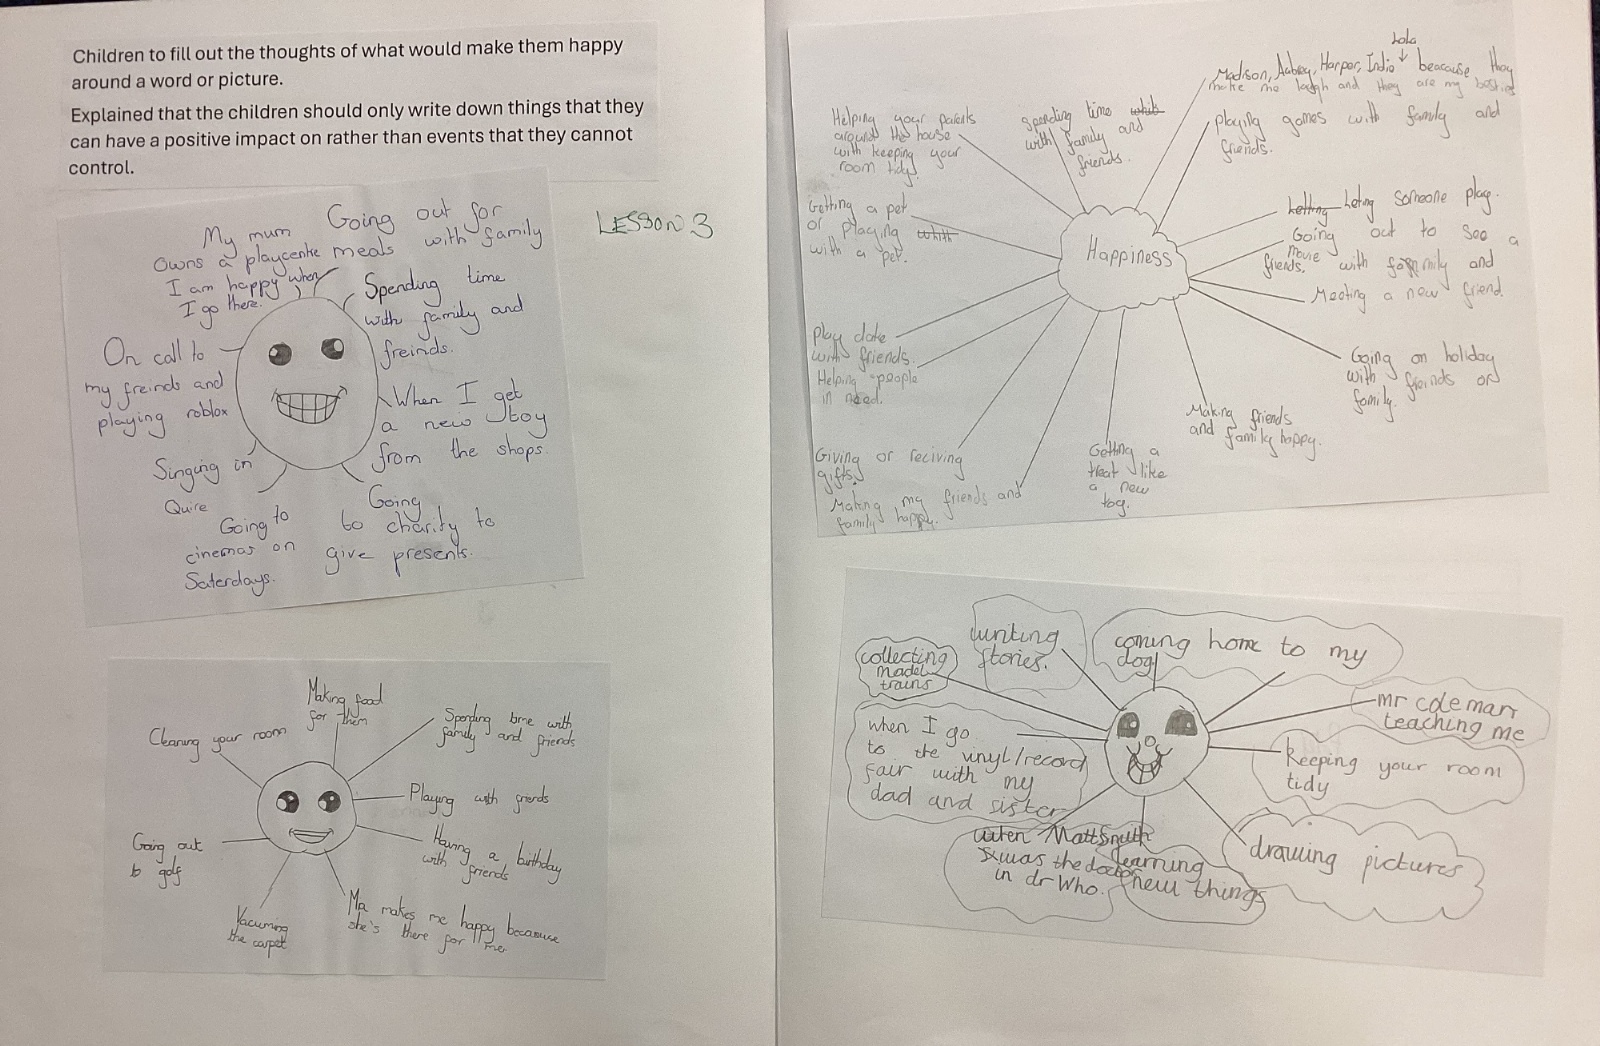 Children to fill out the thoughts of what would make them happy
around a word or picture.
Explained that the children should only write down things that they
can have a positive impact on rather than events that they cannot
control.
LESSON 3
My mum
owns a playcentre
I am happy when
I go there.
Going out for
meals with family
Spending time
with family and
freinds.
On call to
my freinds and
playing roblox
When I get
a new toy
from the shops.
Singing in
Quire
Going to
cinemas on
Saterdays.
Going
to charity to
give presents.
Making food
for them
Cleaning your room
Spending time with
family and friends
Playing with friends
Having a birthday
with friends
Going out
to golf
Vacuming
the carpet
Ma makes me happy because
she's there for me
Lola
Madison, Aubrey, Harper, Indie ↓ bearause they
make me laugh and they are my besties
Helping your parents
around the house
with keeping your
room tidy.
spending time
with family and
friends.
playing games with family and
friends.
Getting a pet
or playing
with a pet.
Happiness
leting someone play.
Going out to see a
movie with family and
friends.
Meeting a new friend.
play date
with friends.
Helping people
in need.
Going on holiday
with freinds or
family.
Making friends
and family happy.
Giving or reciving
gifts.
Making my friends and
family happy.
Getting a
treat like
a new
toy.
writing
stories.
coming home to my
dog
collecting
model
trains
mr coleman
teaching me
when I go
to the vinyl/record
fair with my
dad and sister
keeping your room
tidy
when Matt Smith
was the doctor
in dr Who.
learning
new things
drawing pictures